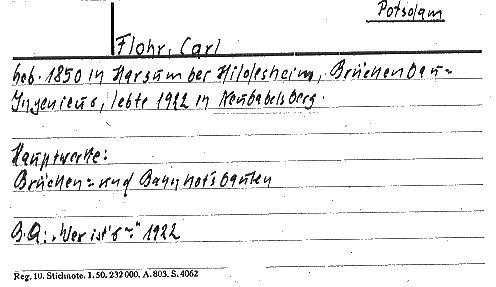 Potsdam
Flohr, Carl
Geb. 1850 in Harsum bei Hildesheim, Brückenbau-
Ingenieur, lebte 1922 in Neubabelsberg.
Hauptwerke:
Brücken- und Bahnhofsbauten
B.Q.: "Wer ist's-" 1922
Reg. 10. Stichnote. I. 50. 232000. A. 803. S. 4062